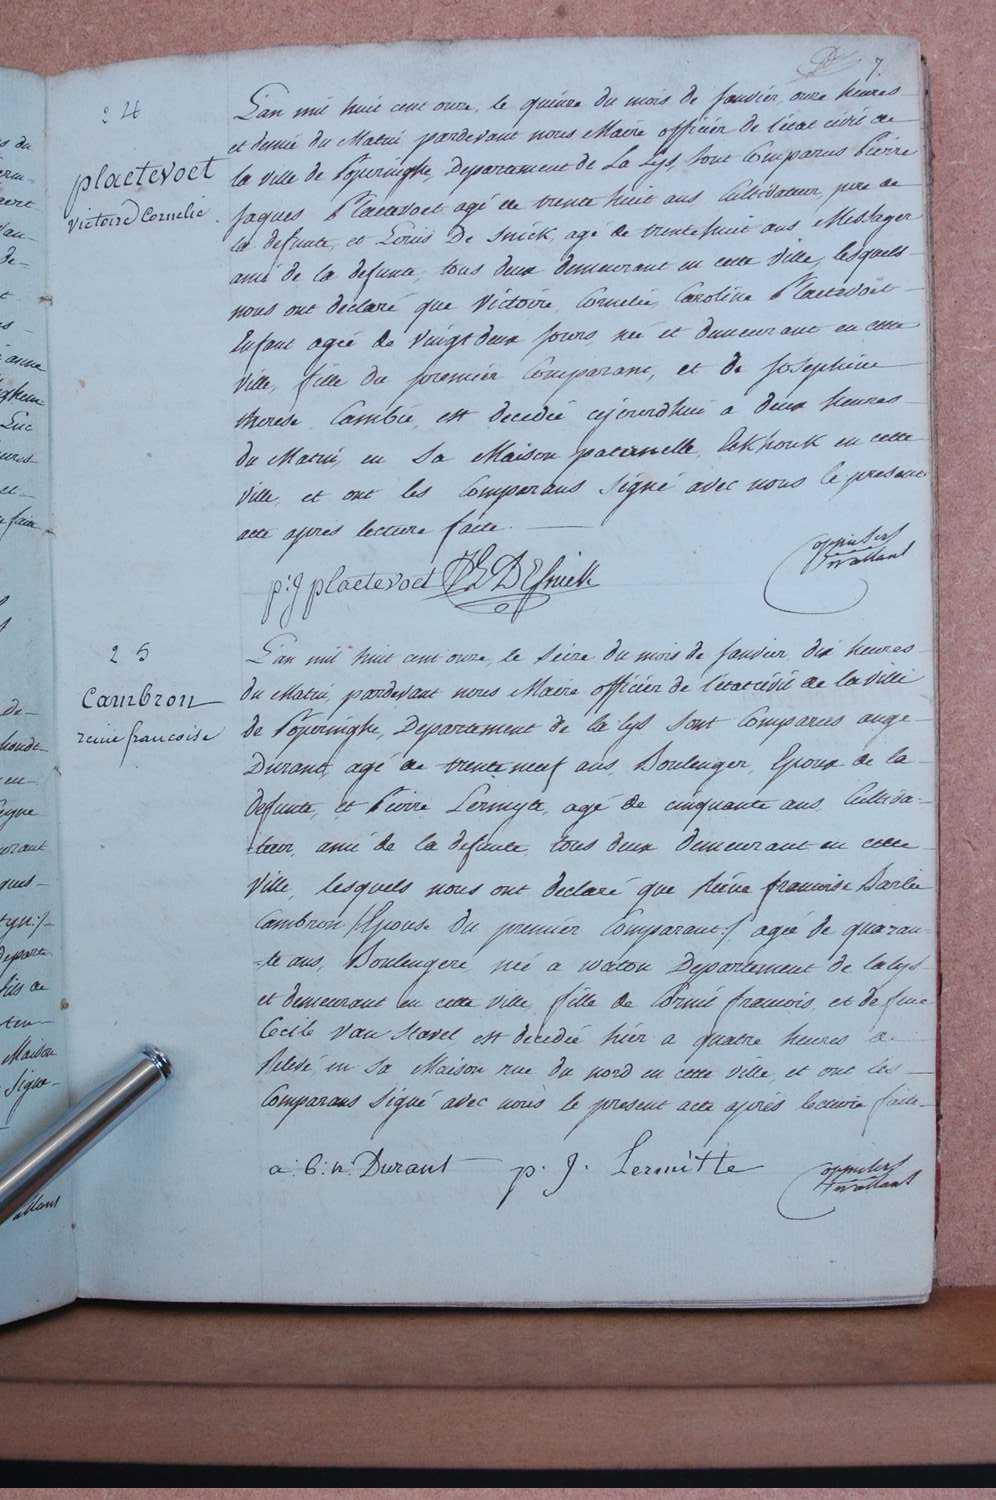 7.
24
plaetevoet
Victoire Cornelie
L'an mil huit cent onze, le quinze du mois de Janvier, onze heures
et demie du Matin, pardevant nous Maire officier de l'état civil de
la ville de Poperinghe, Departement de La Lys, sont Comparus Pierre
Jaques Plaetevoet agé de trente huit ans Cultivateur, pere de
la defunte, et Louis De Snick, agé de trente huit ans Messager
ami de la defunte, tous deux demeurant en cette ville, lesquels
nous ont declaré que Victoire Cornelie Caroline Plaetevoet
Enfant agée de Vingt deux jours, née et demeurant en cette
Ville, fille du premier Comparant, et de Josephine
therese Cambie, est decedée cejourd'hui a deux heures
du Matin, en Sa Maison paternelle, Ekhouk en cette
ville, et ont les Comparans Signé avec nous le present
acte apres lecture faite.
p: J plaetevoet L DESnick
25
Cambron
reine francoise
L'an mil huit cent onze, le Seize du mois de Janvier, dix heures
du Matin, pardevant nous Maire officier de l'état civil de la ville
de Poperinghe, Departement de la lys sont Comparus ange
Durant, agé de trente neuf ans, Boulenger, Epoux de la
defunte, et Pierre Lermyte, agé de cinquante ans Cultiva-
-teur, ami de la defunte, tous deux demeurant en cette
Ville, lesquels nous ont declaré que Reine francoise Barbe
Cambron /:Epouse du premier Comparant:/ agée de quaran-
-te ans, Boulengere, née a watou Departement de la lys
et demeurant en cette ville, fille de Cornil francois, et de fine
Cecile Van Stavel est decedée hier a quatre heures de
Relevé en Sa Maison rue du nord en cette ville, et ont les
Comparans Signé avec nous le present acte apres lecture faite
a: b: n: Durant p. J. Lermitte